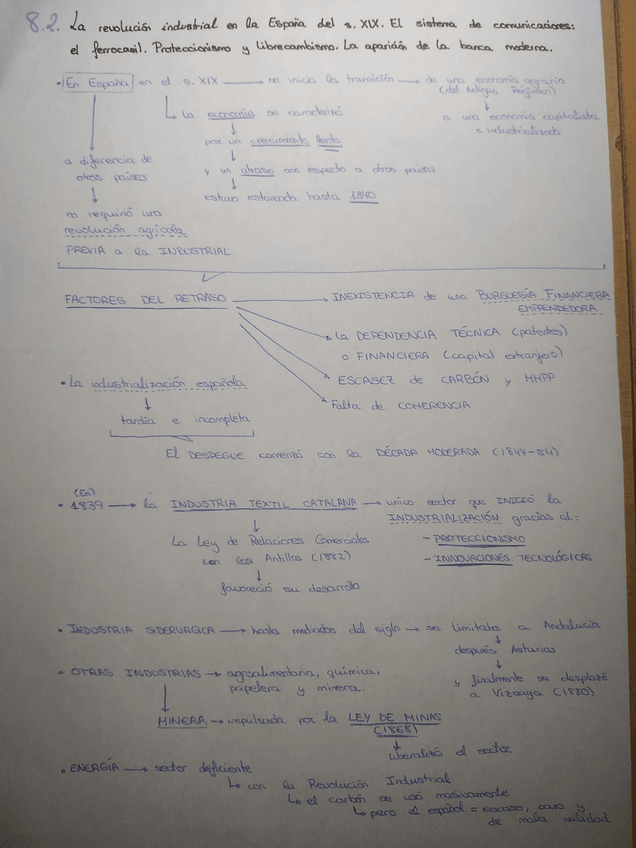 8.2. La revolución industrial en la España del s. XIX. El sistema de comunicaciones:
el ferrocarril. Proteccionismo y Librecambismo. La aparición de la banca moderna.
· En España en el s. XIX → se inicia la transición → de una economía agraria
(del Antiguo Régimen)
a una economía capitalista
e industrializada
La economía se caracterizó
por un crecimiento lento
y un atraso con respecto a otros países
estuvo estancada hasta 1840
a diferencia de
otros países
no requirió una
revolución agrícola
PREVIA a la INDUSTRIAL
FACTORES DEL RETRASO → INEXISTENCIA de una BURGUESÍA FINANCIERA
EMPRENDEDORA
La DEPENDENCIA TÉCNICA (patentes)
o FINANCIERA (capital extranjero)
ESCASEZ de CARBÓN y MMPP
Falta de COHERENCIA
· La industrialización española
tardía e incompleta
El DESPEGUE comenzó con la DÉCADA MODERADA (1844-54)
(En)
· 1839 → la INDUSTRIA TEXTIL CATALANA → único sector que INICIÓ la
INDUSTRIALIZACIÓN gracias al:
- PROTECCIONISMO
- INNOVACIONES TECNOLÓGICAS
La Ley de Relaciones Comerciales
con las Antillas (1882)
favoreció su desarrollo
· INDUSTRIA SIDERURGICA → hasta mediados del siglo → se limitaba a Andalucía
después Asturias
y finalmente se desplazó
a Vizcaya (1880)
· OTRAS INDUSTRIAS → agroalimentaria, química,
papelera y minera.
MINERA → impulsada por la LEY DE MINAS
(1868)
liberalizó el sector
· ENERGÍA → sector deficiente
con la Revolución Industrial
el carbón se usó masivamente
pero el español = escaso, caro y
de mala calidad